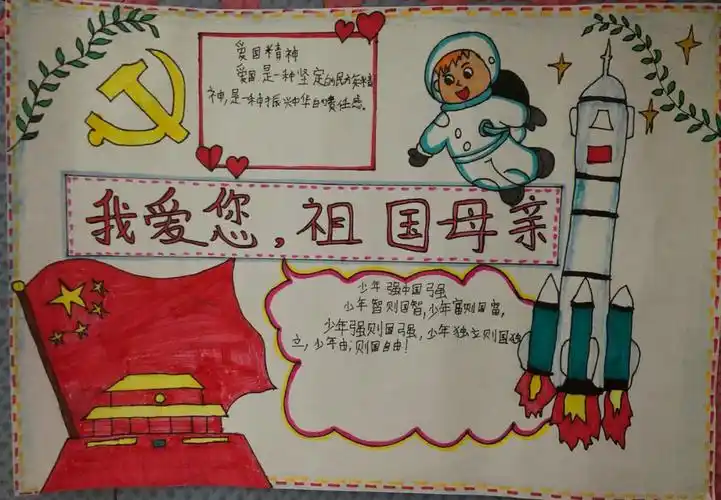 爱国精神
爱国,是一种坚定的民族精
神,是一种振兴中华的责任感。
我爱您,祖国母亲
少年强中国强
少年智则国智,少年富则国富,
少年强则国强,少年独立则国独
立,少年由,则国自由!